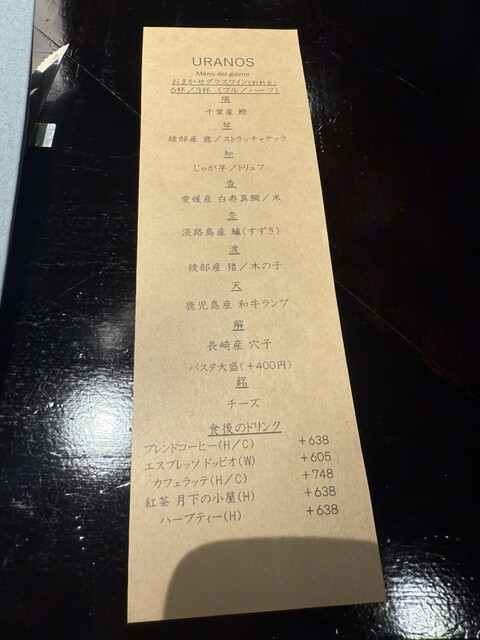 URANOS
Menù del giorno
おまかせグラスワイン(別料金)
6杯／3杯 (フル／ハーフ)
千葉産 鰹
琴
綾部産 鹿／ストラッチャテッラ
和
じゃが芋／トリュフ
香
愛媛産 白寿真鯛／米
淡路島産 鱸(すずき)
渡
綾部産 猪／木の子
天
鹿児島産 和牛ランプ
解
長崎産 穴子
パスタ大盛(＋400円)
銘
チーズ
食後のドリンク
ブレンドコーヒー(H／C) +638
エスプレッソ ドッピオ(W) +605
カフェラッテ(H／C) +748
紅茶 月下の小屋(H) +638
ハーブティー(H) +638